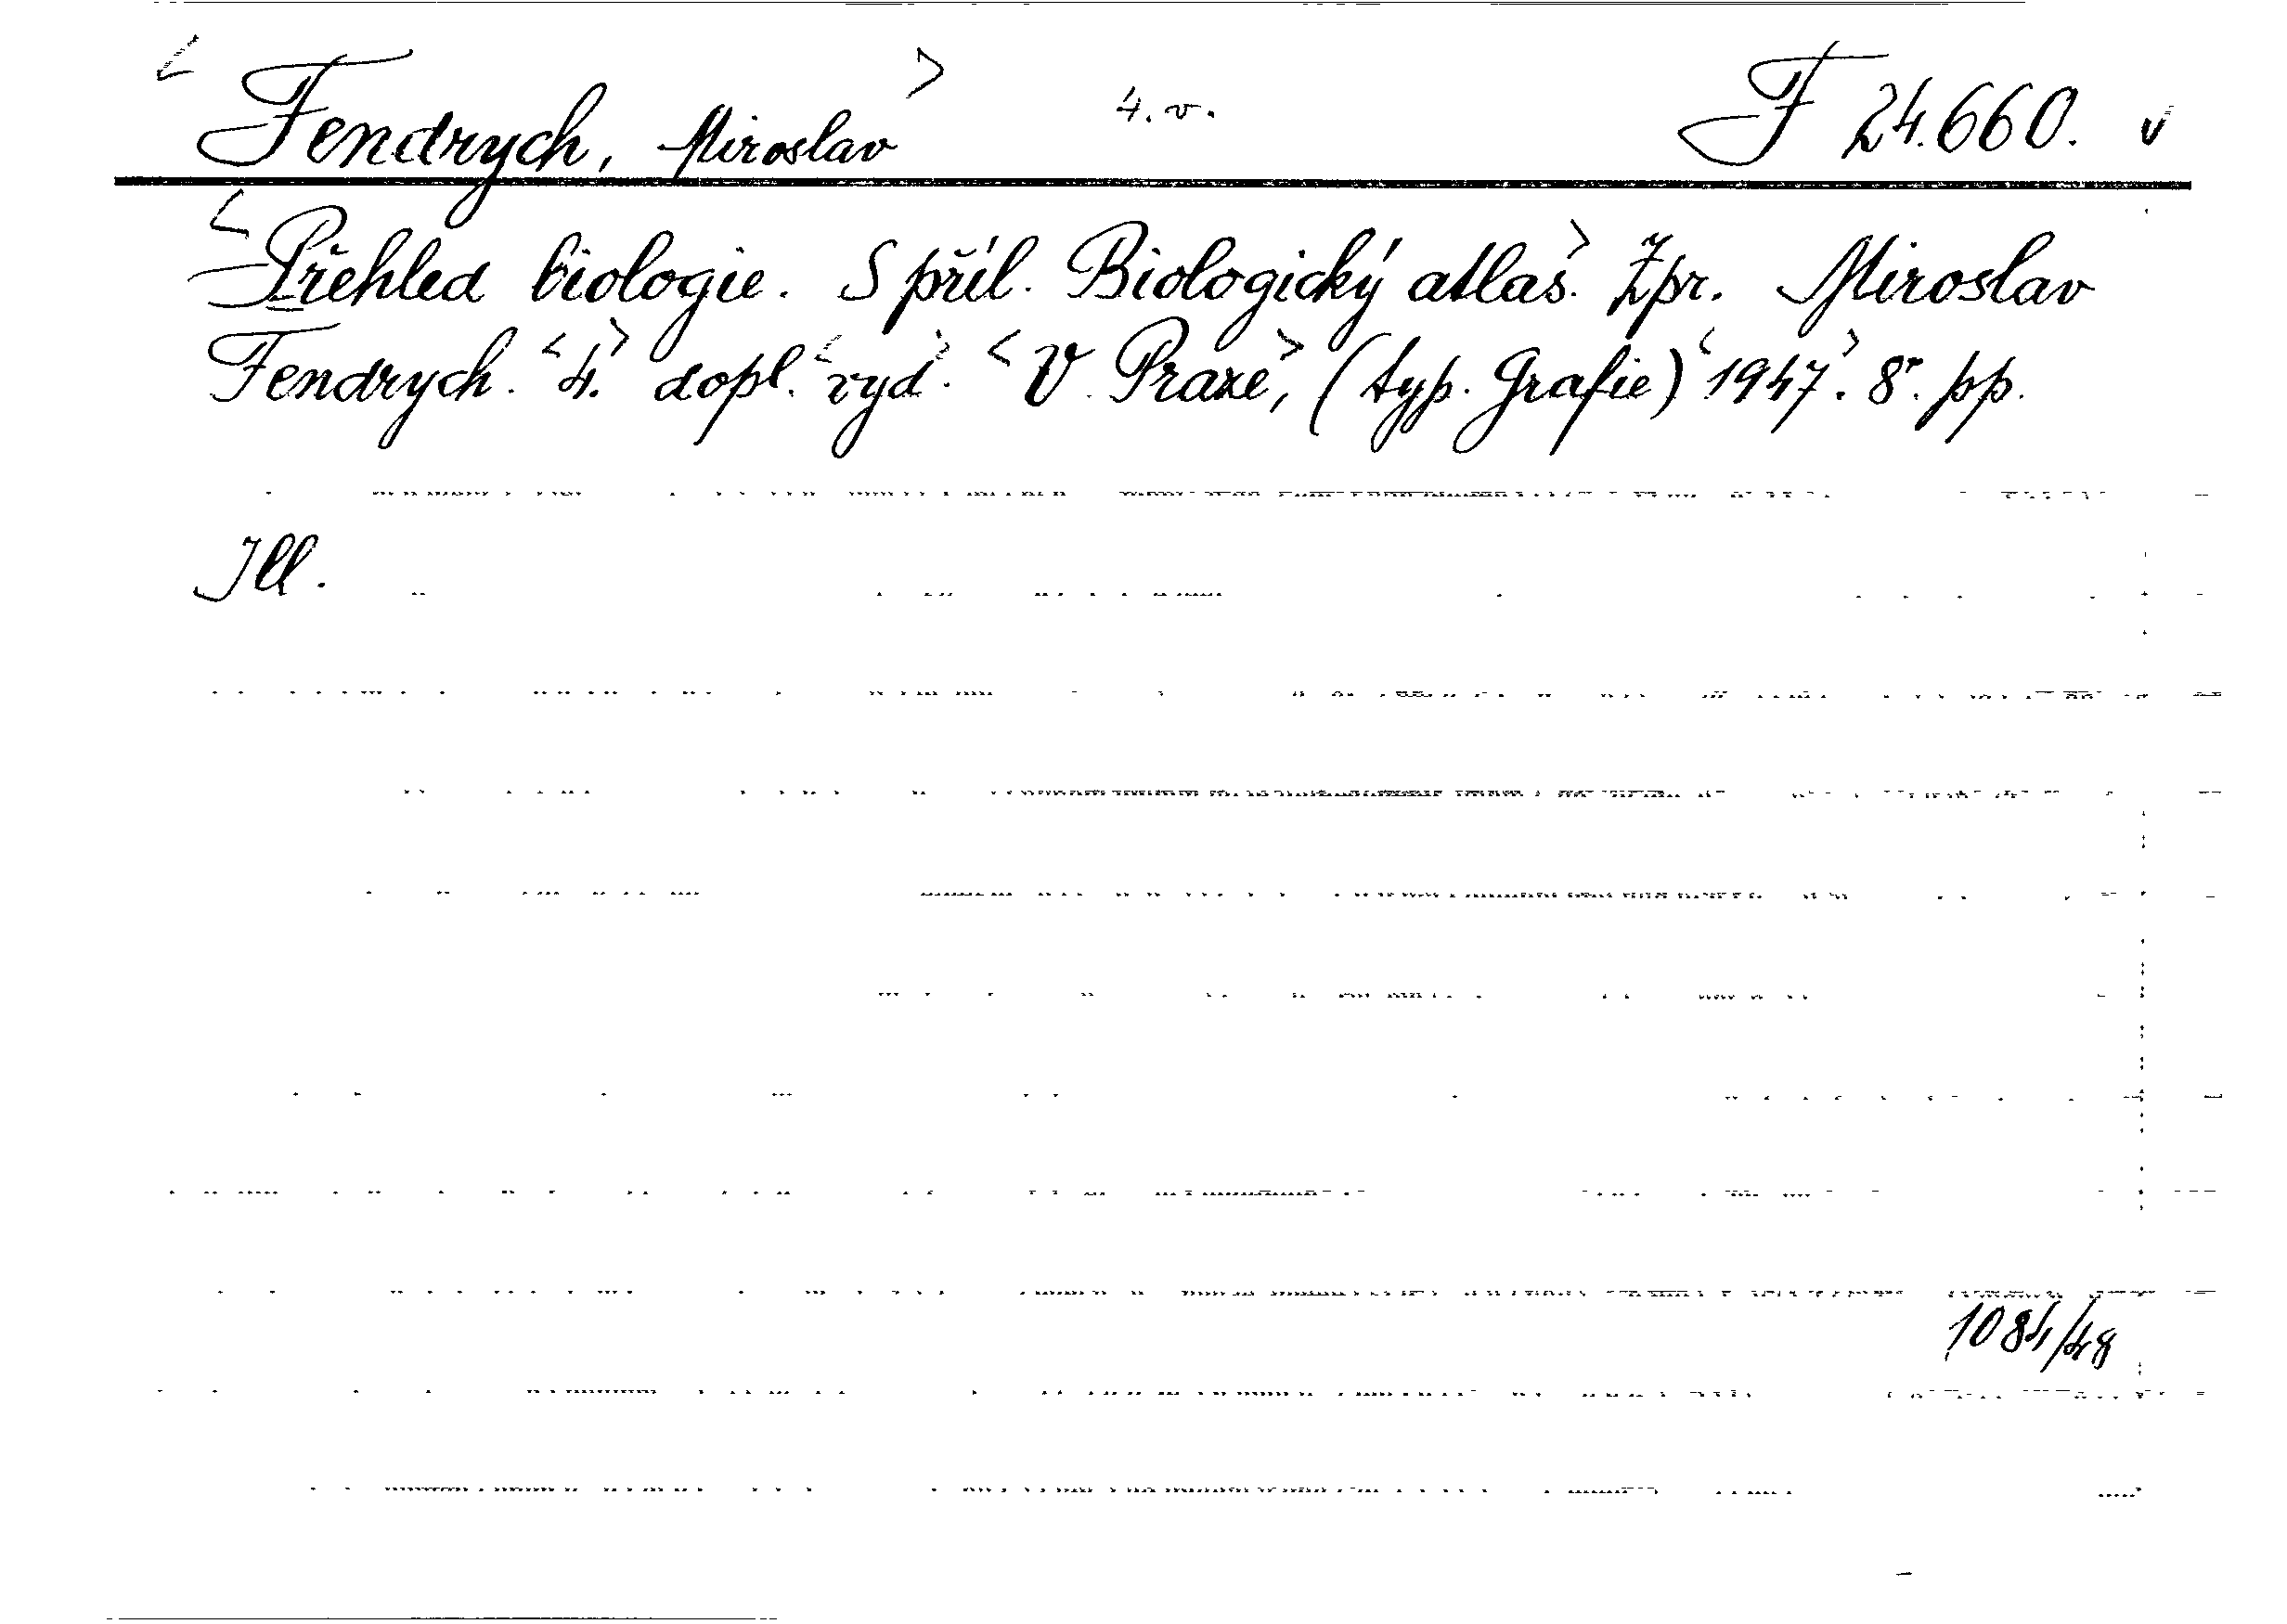 <Fendrych, Miroslav> 4. v. F 24.660. v
<Přehled biologie. S příl. Biologický atlas.> Zpr. Miroslav
Fendrych. <4.> dopl. <vyd.> <V Praze>, (typ. Grafie) <1947>. 8°. pp.
Ill.
1084/48